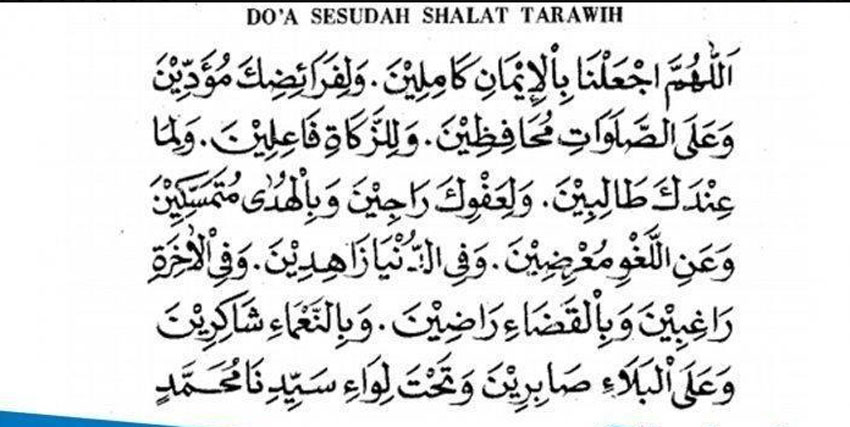 DO'A SESUDAH SHALAT TARAWIH
اَللّٰهُمَّ اجْعَلْنَا بِاْلإِيْمَانِ كَامِلِيْنَ. وَلِفَرَائِضِكَ مُؤَدِّيْنَ
وَعَلَى الصَّلَوَاتِ مُحَافِظِيْنَ. وَلِلزَّكَاةِ فَاعِلِيْنَ. وَلِمَا
عِنْدَكَ طَالِبِيْنَ. وَلِعَفْوِكَ رَاجِيْنَ وَبِاْلهُدٰى مُتَمَسِّكِيْنَ
وَعَنِ اللَّغْوِ مُعْرِضِيْنَ. وَفِى الدُّنْيَا زَاهِدِيْنَ. وَفِى اْلاٰخِرَةِ
رَاغِبِيْنَ وَبِاْلقَضَاءِ رَاضِيْنَ. وَبِالنَّعْمَاءِ شَاكِرِيْنَ
وَعَلَى اْلبَلَاءِ صَابِرِيْنَ وَتَحْتَ لِوَاءِ سَيِّدِنَا مُحَمَّدٍ